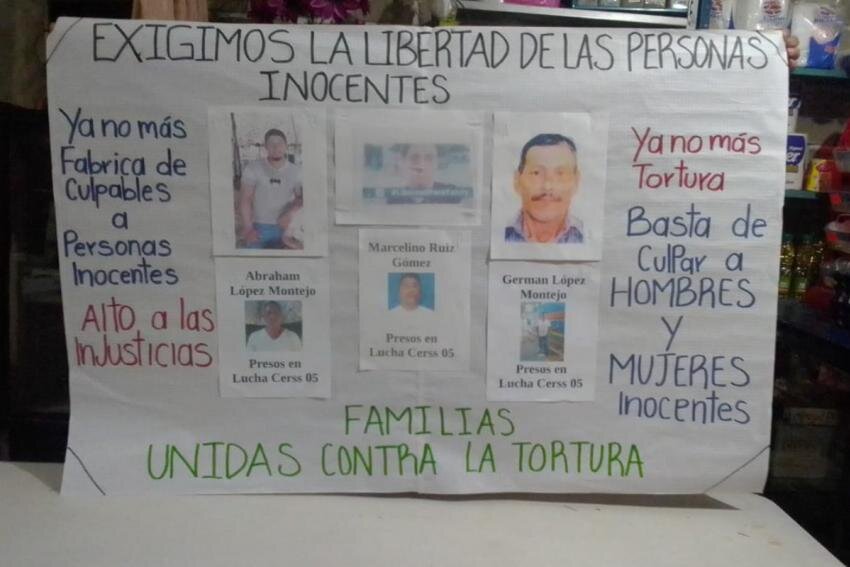 EXIGIMOS LA LIBERTAD DE LAS PERSONAS
INOCENTES
Ya no más
Fabrica de
Culpables
a
Personas
Inocentes
Alto a las
InJusticias
Abraham
López Montejo
Presos en
Lucha Cerss 05
Marcelino Ruiz
Gómez
Presos en
Lucha Cerss 05
German López
Montejo
Presos en
Lucha Cerss 05
Ya no más
Tortura
Basta de
Culpar a
HOMBRES
Y
MUJERES
Inocentes
FAMILIAS
UNIDAS CONTRA LA TORTURA